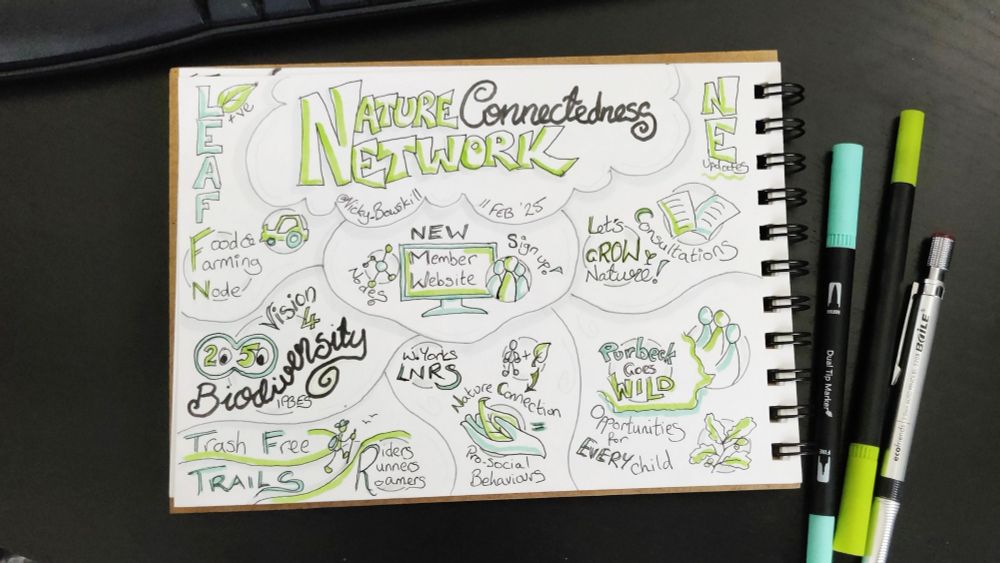 LEAF
+ve
NATURE Connectedness
NETWORK
@Vicky_Bowskill
11 FEB '25
NE
updates
Food &
Farming
Node
NEW
Member
Website
Nodes
Sign up!
Let's
GROW
Nature!
Consultations
Vision
4
2050
Biodiversity
IPBES
W. Yorks
LNRS
Nature Connection
=
Pro-Social
Behaviours
Purbeck
Goes
WILD
Opportunities
for
EVERY child
Trash Free
TRAILS
Riders
Runners
Roamers
Dual Tip Marker
FINE
BAILE